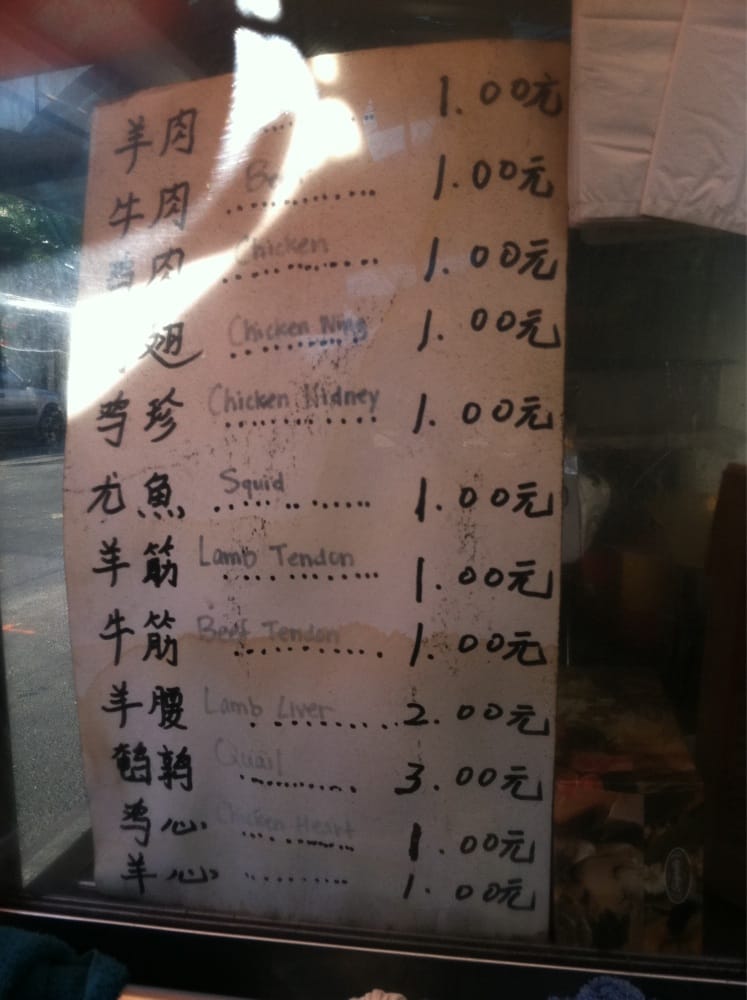 羊肉 ..... 1.00元
牛肉 Beef ............... 1.00元
鸡肉 Chicken ............... 1.00元
翅 Chicken Wing ............ 1.00元
鸡珍 Chicken Kidney ............. 1.00元
尤魚 Squid ............. 1.00元
羊筋 Lamb Tendon ............. 1.00元
牛筋 Beef Tendon ............. 1.00元
羊腰 Lamb Liver ............. 2.00元
鹌鹑 Quail ............ 3.00元
鸡心 Chicken Heart ............ 1.00元
羊心 ............ 1.00元